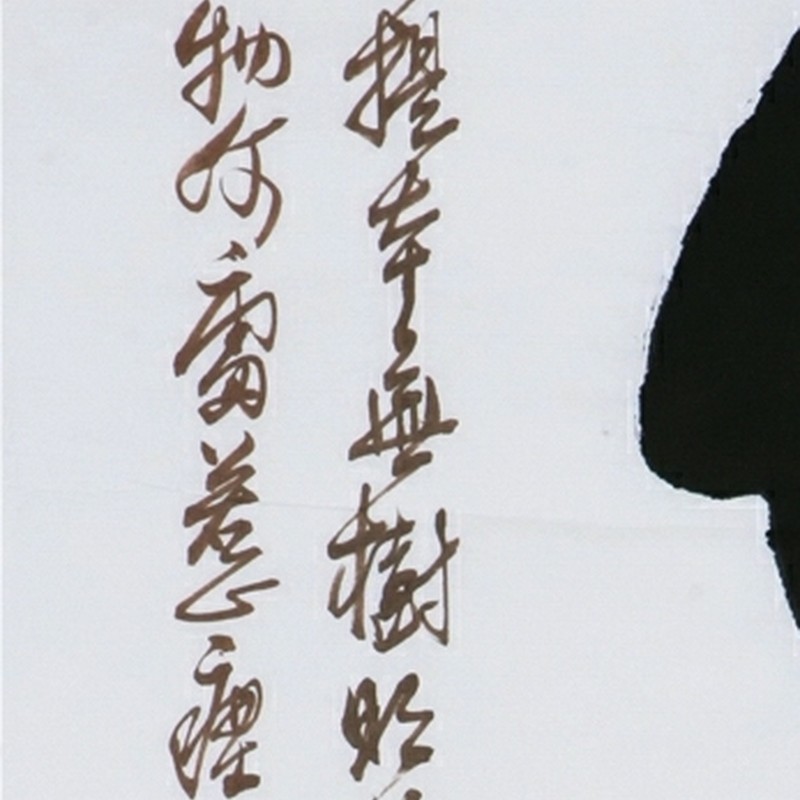 提本無樹明
物何處惹塵